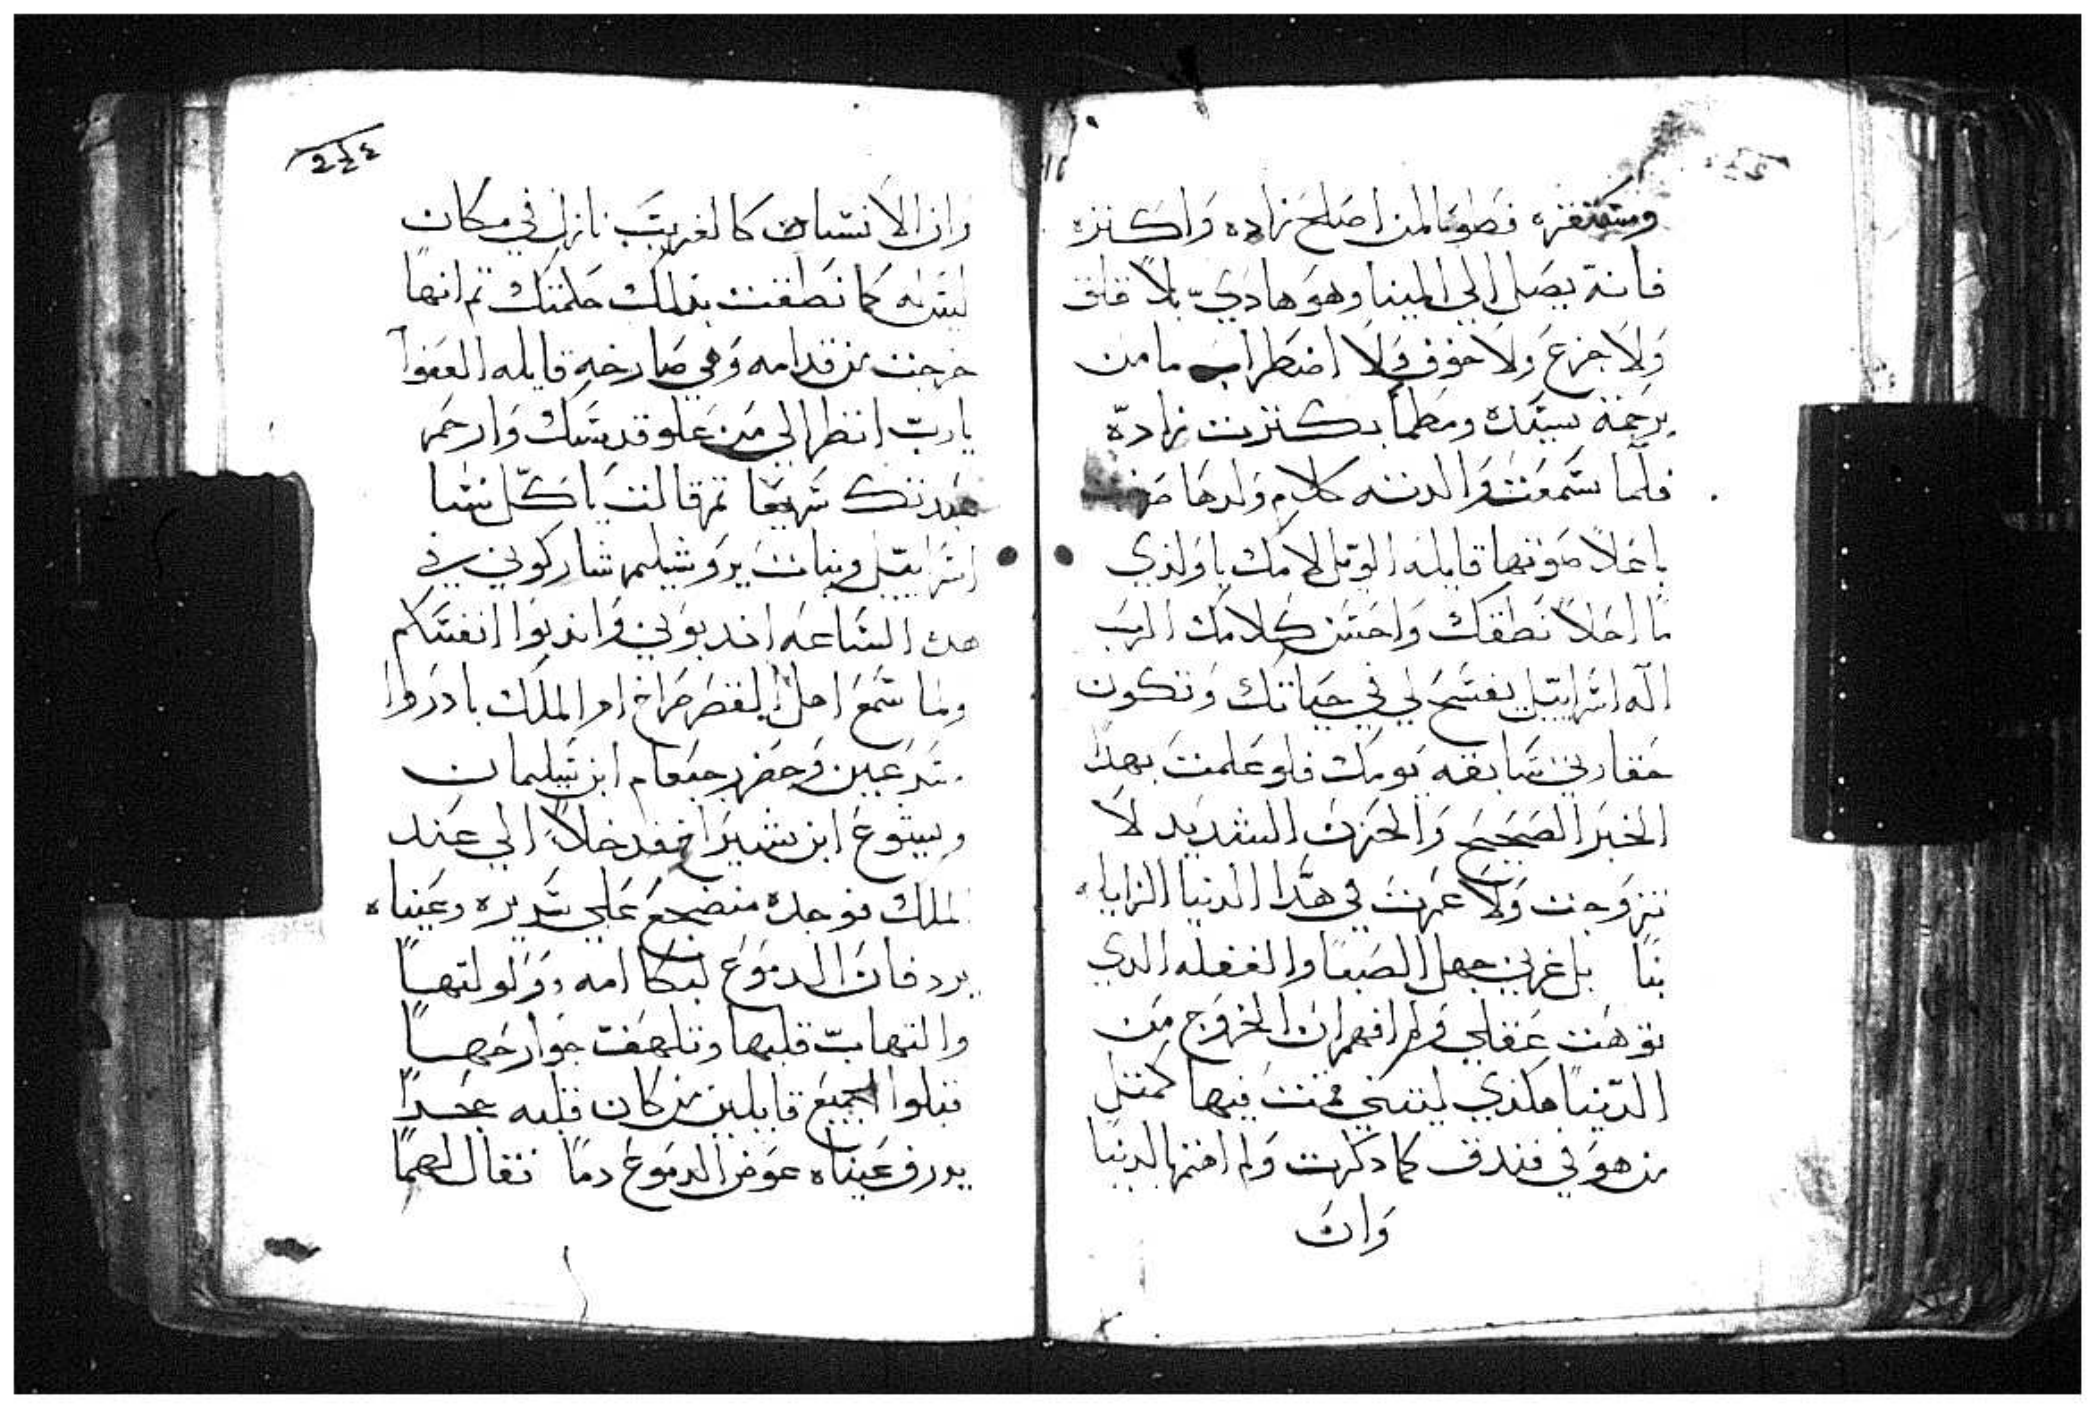 ومستقره فطوبا لمن اصلح زاده واكنزه
فانه يصل الي المينا وهو هادي بلا قلق
ولا جزع ولا خوف ولا اضطراب مامن
برحمة سيده ومطما بكنزت زاده
فلما سمعت والدته كلام ولدها
باعلا صوتها قايله الويل لامك ياولدي
ما احلا نطقك واحسن كلامك الرب
اله اسراييل يفسح لي في حياتك وتكون
سابقه يومك فلو علمت بهدا
الخبر الصحيح والحزن الشديد لا
تزوجت ولا عرفت في هدا الدنيا
بل غرني جهل الصبا والغفله الدي
توهت عقلي ولم افهم ان الخروج من
الدنيا هكذي ليتني قمت فيها كمتل
من هو في فندق كما دكرت ولم اهتم الدنيا
وان
وان الانسان كالغريب نازل في مكان
ليس له كما نطقت بدلك حكمتك تم انها
خرجت من قدامه وهي صارخه قايله العفوا
يارب انظر الي من علو قدسك وارحم
عبدتك سريعا تم قالت ياكل نسا
اسراييل وبنات يروشليم شاركوني في
هده الساعه اندبوني واندبوا انفسكم
ولما سمع اهل القصر صراخ ام الملك بادروا
مسرعين وحضر رحبعام ابن سليمان
ويسوع ابن شيراخ فدخلا الي عند
الملك فوجده منضجع علي سريره وعيناه
يردفان الدموع لبكا امه وولولتها
والتهاب قلبها وتلهفت جوارحها
فبكوا الجميع قايلين من كان قلبه حجدا
يدرف عيناه عوض الدموع دما فقال لهما